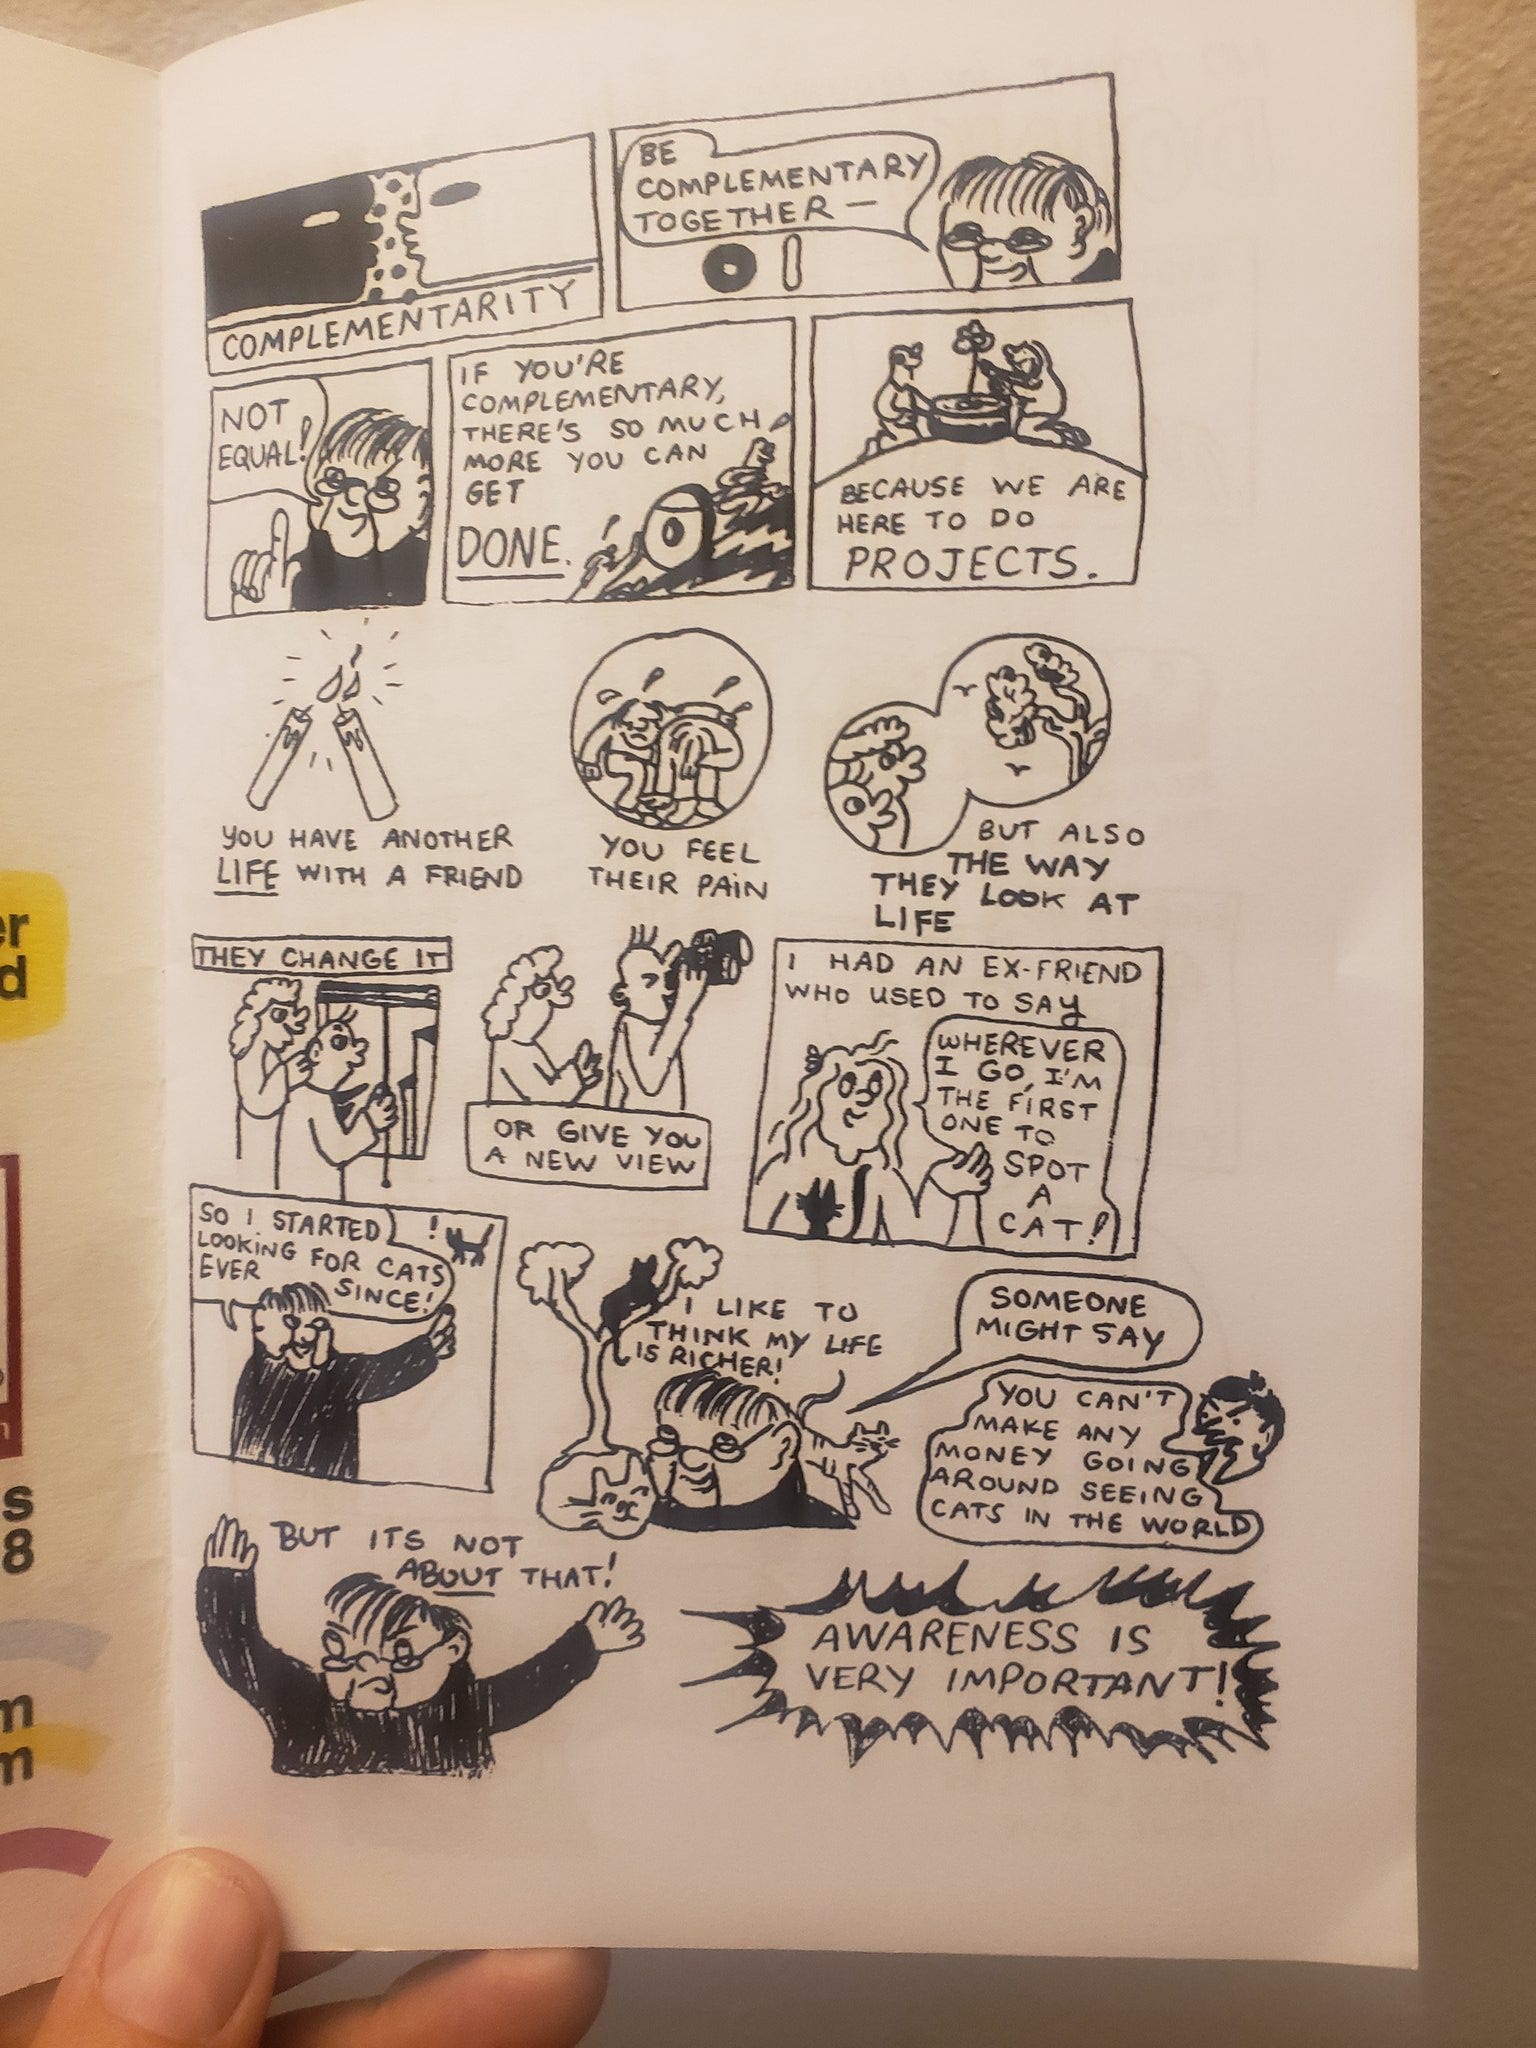 COMPLEMENTARITY
BE
COMPLEMENTARY
TOGETHER —
NOT
EQUAL!
IF YOU'RE
COMPLEMENTARY,
THERE'S SO MUCH
MORE YOU CAN
GET
DONE.
BECAUSE WE ARE
HERE TO DO
PROJECTS.
YOU HAVE ANOTHER
LIFE WITH A FRIEND
YOU FEEL
THEIR PAIN
BUT ALSO
THE WAY
THEY LOOK AT
LIFE
THEY CHANGE IT
OR GIVE YOU
A NEW VIEW
I HAD AN EX-FRIEND
WHO USED TO SAY
WHEREVER
I GO, I'M
THE FIRST
ONE TO
SPOT
A
CAT!
SO I STARTED
LOOKING FOR CATS
EVER
SINCE!
!
I LIKE TO
THINK MY LIFE
IS RICHER!
SOMEONE
MIGHT SAY
YOU CAN'T
MAKE ANY
MONEY GOING
AROUND SEEING
CATS IN THE WORLD
BUT ITS NOT
ABOUT THAT!
AWARENESS IS
VERY IMPORTANT!
er
d
s
8
m
m